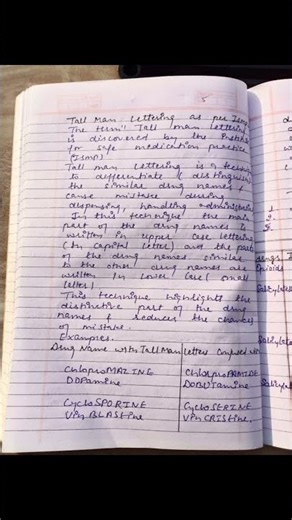 Tall Man Lettering as per Ismp
The term "Tall man lettering
is discovered by the Institute
for safe medication practice
(Ismp)
Tall man lettering is a technique
to differentiate & distinguish
the similar drug names &
cause mistake during
dispensing, handling administration
In this technique the main
part of the drug names is
written in upper case lettering
(In capital letter) and the part
of the drug names similar
to the other drug names are
written in lower case (small
letter)
This technique highlights the
distinctive part of the drug
names & reduces the chances
of mistake.
Examples.
Drug Name with Tall Man letters Confused with
ChlproMAZINE ChlorproPAMIDE
DOPamine DOBUTamine
CycloSPORINE CycloSERINE
VinBLASTine VinCRIStine.